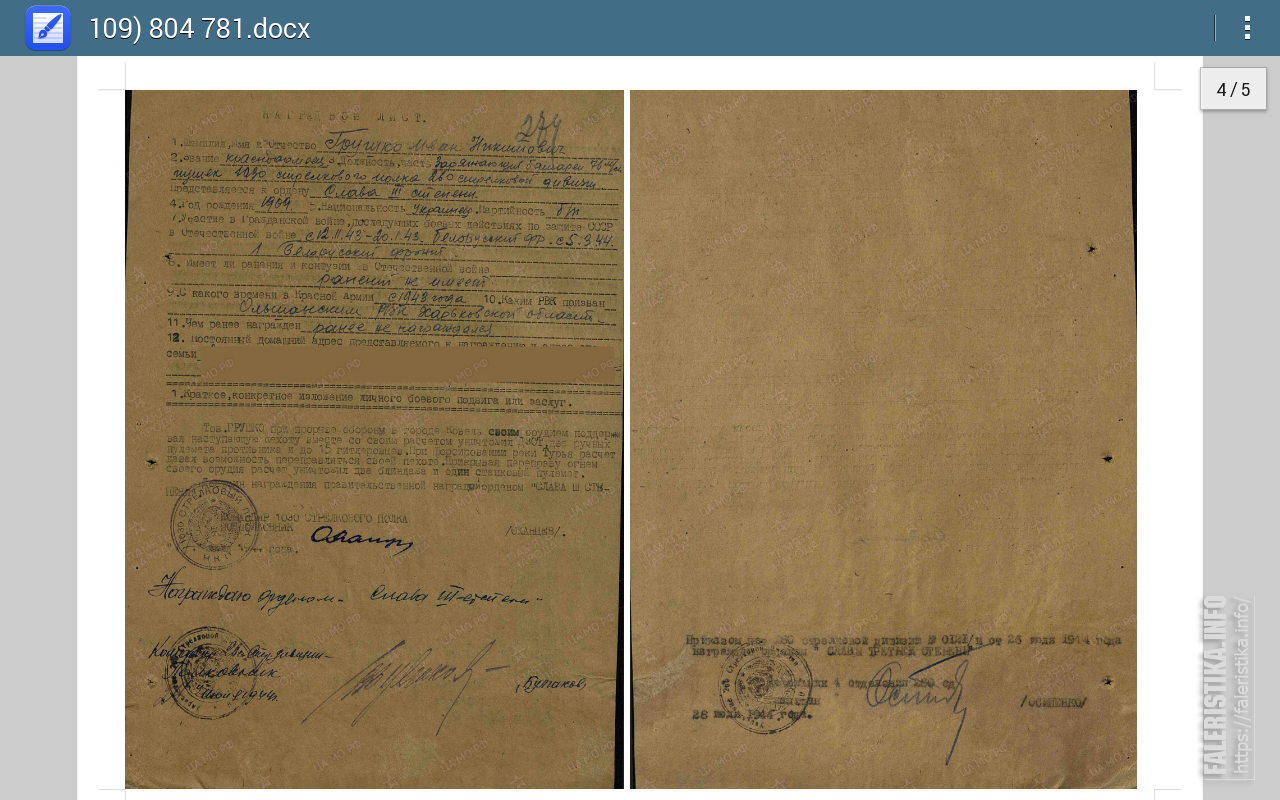 109) 804 781.docx
4 / 5
НАГРАДНОЙ ЛИСТ.
274
1.Фамилия,имя и Отчество Грушко Иван Никитович
2.Звание красноармеец 3.Должность,часть Заряжающий батареи 76 м/м
пушек 1030 стрелкового полка 260 стрелковой дивизии
Представляется к ордену Слава III степени.
4.Год рождения 1909. 5.Национальность Украинец 6.Партийность б/п
7.Участие в Гражданской войне,последующих боевых действиях по защите СССР
и Отечественной войне с 12.11.43-20.1.43. Белорусский фр. с 5.3.44.
1. Белорусский фронт.
8. Имеет ли ранения и контузии в Отечественной войне
ранений не имеет
9.С какого времени в Красной Армии с 1943 года 10.Каким РВК призван
Ольшанским РВК Харьковской области
11.Чем ранее награжден ранее не награждался
12. Постоянный домашний адрес представляемого к награждению и адрес его
семьи
1.Краткое,конкретное изложение личного боевого подвига или заслуг.
Тов.ГРУШКО при прорыве обороны в городе Ковель своим орудием поддержи
вая наступающую пехоту вместе со своим расчетом уничтожил ДЗОТ,два ручных
пулемета противника и до 15 гитлеровцев.При форсировании реки Турья расчет
давал возможность переправляться своей пехоте.Прикрывая переправу огнем
своего орудия расчет уничтожил два блиндажа и один станковый пулемет.
награждения правительственной наградой орденом "СЛАВА Ш СТЕ-
ПЕНИ"
КОМАНДИР 1030 СТРЕЛКОВОГО ПОЛКА
ПОДПОЛКОВНИК
/ОХАНЦЕВ/.
1944 года.
Награждаю орденом- Слава III-степени-
Полковник
1944г.
Приказом по 260 стрелковой дивизии № 0121/н от 26 июля 1944 года
награжден орденом " СЛАВЫ ТРЕТЬЕЙ СТЕПЕНИ"
4 отделения 260 сд
капитан
/ОСИПЕНКО/
28 июля 1944 года.
FALERISTIKA.INFO
https://faleristika.info/